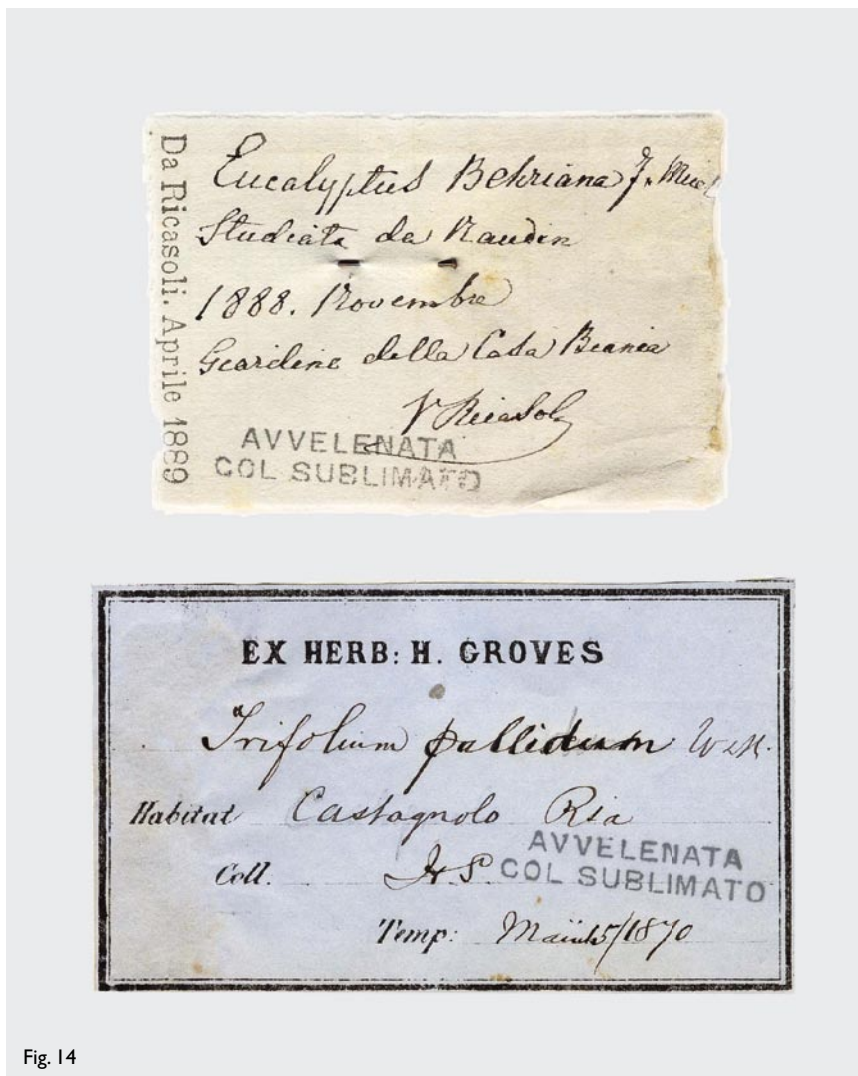 Da Ricasoli. Aprile 1889
Eucalyptus Behriana F. Muel
Studiata da Naudin
1888. Novembre
Giardino della Casa Bianca
V Ricasoli
AVVELENATA
COL SUBLIMATO
EX HERB: H. GROVES
Trifolium pallidum W&K.
Habitat Castagnolo
Coll.
AVVELENATA
COL SUBLIMATO
Temp: 1870
Fig. 14